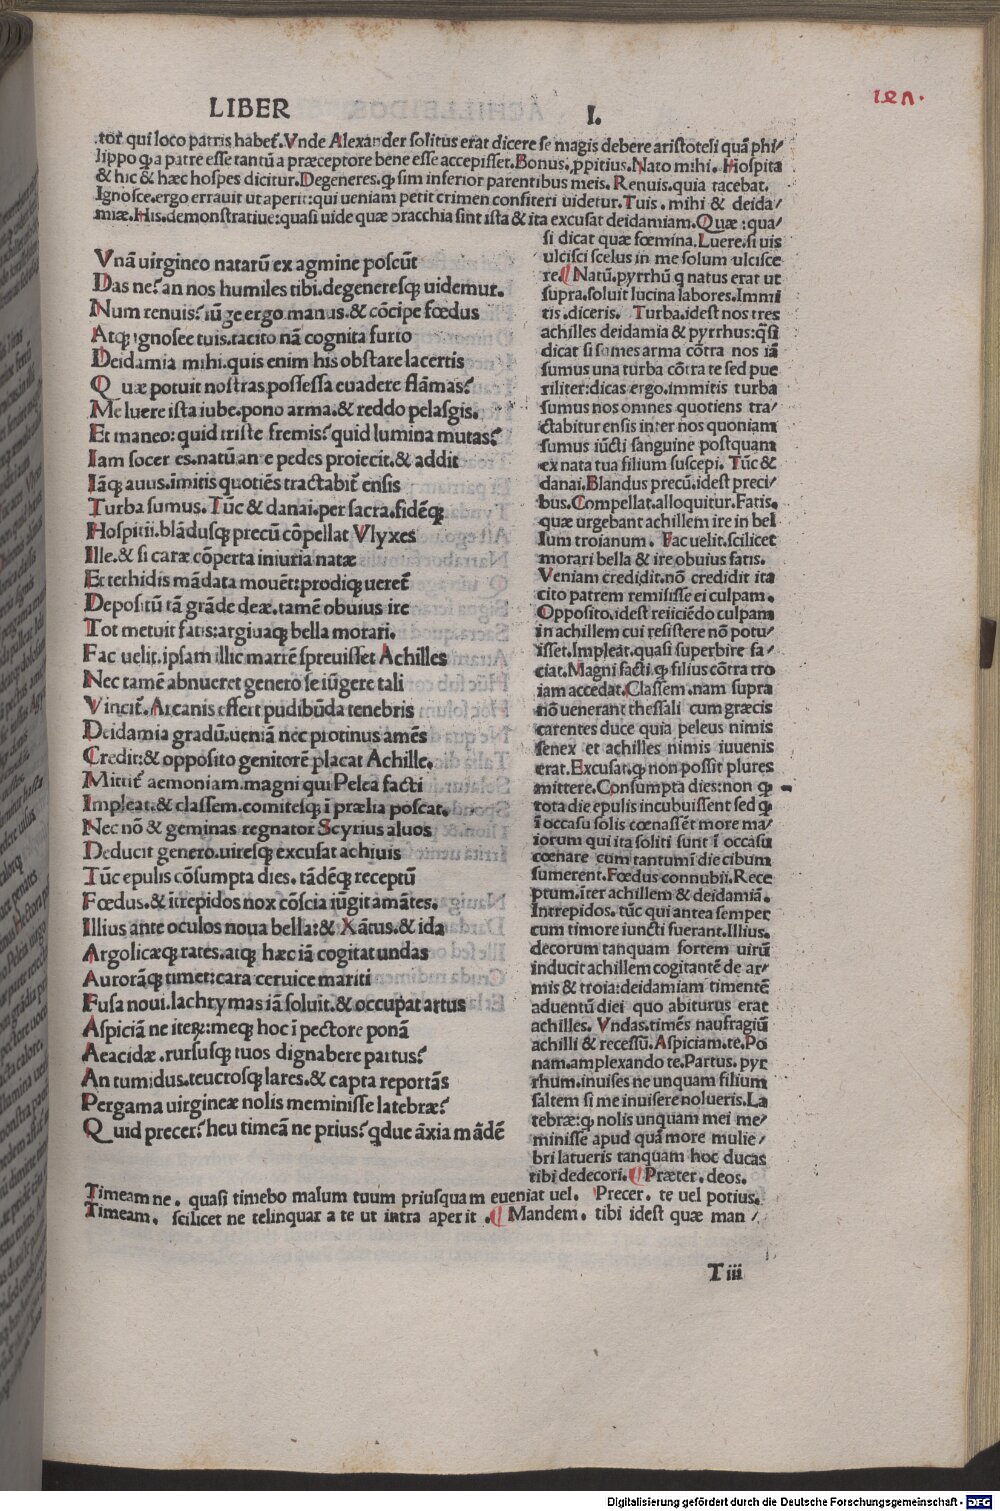 LIBER I.
.tor qui loco patris habet̃.Vnde Alexander solitus erat dicere se magis debere aristoteli quã phi/
lippo q̃ a patre esse tantũ a præceptore bene esse accepisset.Bonus.ppitius.Nato mihi.Hospita
& hic & hæc hospes dicitur.Degeneres.q̃ sim inferior parentibus meis.Renuis.quia tacebat.
Ignosce.ergo errauit ut aperit:qui ueniam petit crimen confiteri uidetur.Tuis.mihi & deida/
miæ.His.demonstratiue:quasi uide quæ bracchia sint ista & ita excusat deidamiam.Quæ:qua/
Vnã uirgineo natarũ ex agmine poscũt
Das ne?an nos humiles tibi.degeneresq; uidemur.
Num renuis?iũge ergo manus.& cõcipe fœdus
Atq; ignosce tuis.tacito nã cognita furto
Deidamia mihi.quis enim his obstare lacertis
Quæ potuit nostras possessa euadere flãmas?
Me luere ista iube.pono arma.& reddo pelasgis.
Et maneo:quid triste fremis?quid lumina mutas?
Iam socer es.natũ ante pedes proiecit.& addit
Iãq; auus.imitis quotiẽs tractabit̃ ensis
Turba sumus.Tũc & danai.per sacra.fidẽq;
Hospitii.blãdusq; precũ cõpellat Vlyxes
Ille.& si caræ cõperta iniuria natæ
Et tethidis mãdata mouẽt:prodiq; ueret̃
Depositũ tã grãde deæ.tamẽ obuius ire
Tot metuit fatis:argiuaq; bella morari.
Fac uelit.ipsam illic matrẽ spreuisset Achilles
Nec tamẽ abnueret genero se iũgere tali
Vincit̃.Arcanis effert pudibũda tenebris
Deidamia gradũ.ueniã nec protinus amẽs
Credit:& opposito genitorẽ placat Achille.
Mittit̃ aemoniam.magni qui Pelea facti
Impleat.& classem.comitesq; ĩ prælia poscat.
Nec nõ & geminas regnator Scyrius aluos
Deducit genero.uiresq; excusat achiuis
Tũc epulis cõsumpta dies.tãdẽq; receptũ
Fœdus.& ĩtrepidos nox cõscia iũgit amãtes.
Illius ante oculos noua bella:& Xãtus.& ida
Argolicæq; rates.atq; hæc iã cogitat undas
Aurorãq; timet:cara ceruice mariti
Fusa noui.lachrymas iã soluit.& occupat artus
Aspiciã ne iteꝝ:meq; hoc ĩ pectore ponã
Aeacidæ.rursusq; tuos dignabere partus?
An tumidus.teucrosq; lares.& capta reportãs
Pergama uirgineæ nolis meminisse latebræ?
Quid precer?heu timeã ne prius?qdue ãxia mãdẽ
si dicat quæ fœmina.Luere.si uis
ulcisci scelus in me solum ulcisce
re.¶ Natũ.pyrrhũ q natus erat ut
supra.soluit lucina labores.Immi
tis.diceris. Turba.idest nos tres
achilles deidamia & pyrrhus:q̃si
dicat si sumes arma cõtra nos iã
sumus una turba cõtra te sed pue
riliter:dicas ergo.immitis turba
sumus nos omnes quotiens tra/
ctabitur ensis inter nos quoniam
sumus iũcti sanguine postquam
ex nata tua filium suscepi. Tũc &
danai.Blandus precũ.idest preci/
bus.Compellat.alloquitur.Fatis.
quæ urgebant achillem ire in bel
lum troianum. Fac uelit.scilicet
morari bella & ire obuius fatis.
Veniam credidit.nõ credidit ita
cito patrem remisisse ei culpam.
Opposito.idest reiiciẽdo culpam
in achillem cui resistere nõ potu/
isset.Impleat.quasi superbire fa/
ciat.Magni facti.q̃ filius cõtra tro
iam accedat.Classem.nam supra
nõ uenerant thessali cum græcis
carentes duce quia peleus nimis
senex et achilles nimis iuuenis
erat.Excusat.q̃ non possit plures
mittere.Consumpta dies:non q̃
tota die epulis incubuissent sed q̃
ĩ occasu solis cœnassẽt more ma/
iorum qui ita soliti sunt ĩ occasu
cœnare cum tantum ĩ die cibum
sumerent.Fœdus connubii.Rece
ptum.ĩter achillem & deidamiã.
Intrepidos.tũc qui antea semper
cum timore iuncti fuerant.Illius.
decorum tanquam fortem uirũ
inducit achillem cogitantẽ de ar/
mis & troia:deidamiam timentẽ
aduentũ diei quo abiturus erat
achilles. Vndas.timẽs naufragiũ
achilli & recessũ.Aspiciam.te.Po
nam.amplexando te.Partus.pyr
rhum.inuises ne unquam filium
saltem si me inuisere nolueris.La
tebræ:q nolis unquam mei me/
minisse apud quã more mulie/
bri latueris tanquam hoc ducas
tibi dedecori.¶ Præter.deos.
Timeam ne. quasi timebo malum tuum priusquam eueniat uel. Precer. te uel potius.
Timeam. scilicet ne relinquar a te ut infra aperit.¶ Mandem. tibi idest quæ man/
Tiii
Digitalisierung gefördert durch die Deutsche Forschungsgemeinschaft - DFG